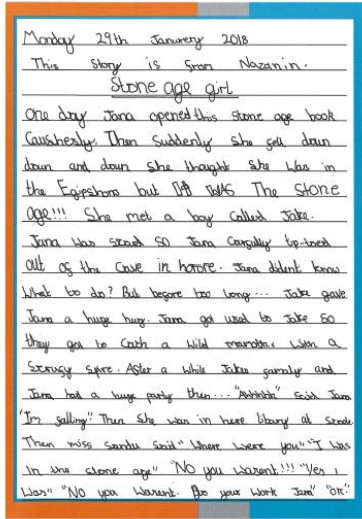 Monday 29th Janurery 2018
This Story is from Nazanin.
Stone age girl
One day Jana opened this stone age book
Caushesly. Then suddenly she fell down
down and down she thought she was in
the Egipshons but IT WAS The STONE
age!!! She met a boy Called Jake.
Jana was scared so Jana Carfully tip-toed
out of the Cave in horore. Jana dident know
What to do? But before too long... Jake gave
Jana a huge hug. Jana got used to Jake So
they got to Catch a wild mamoth with a
spire. After a while Jakes family and
Jana had a huge party then... "Ahhhhh" Said Jana
"Im falling" Then She was in here libary at
Then miss sandu Said "Where were you" "I was
In the stone age" "NO you warent!!!" "Yes I
Was" "NO you Warent. Do your work Jana" "OK."